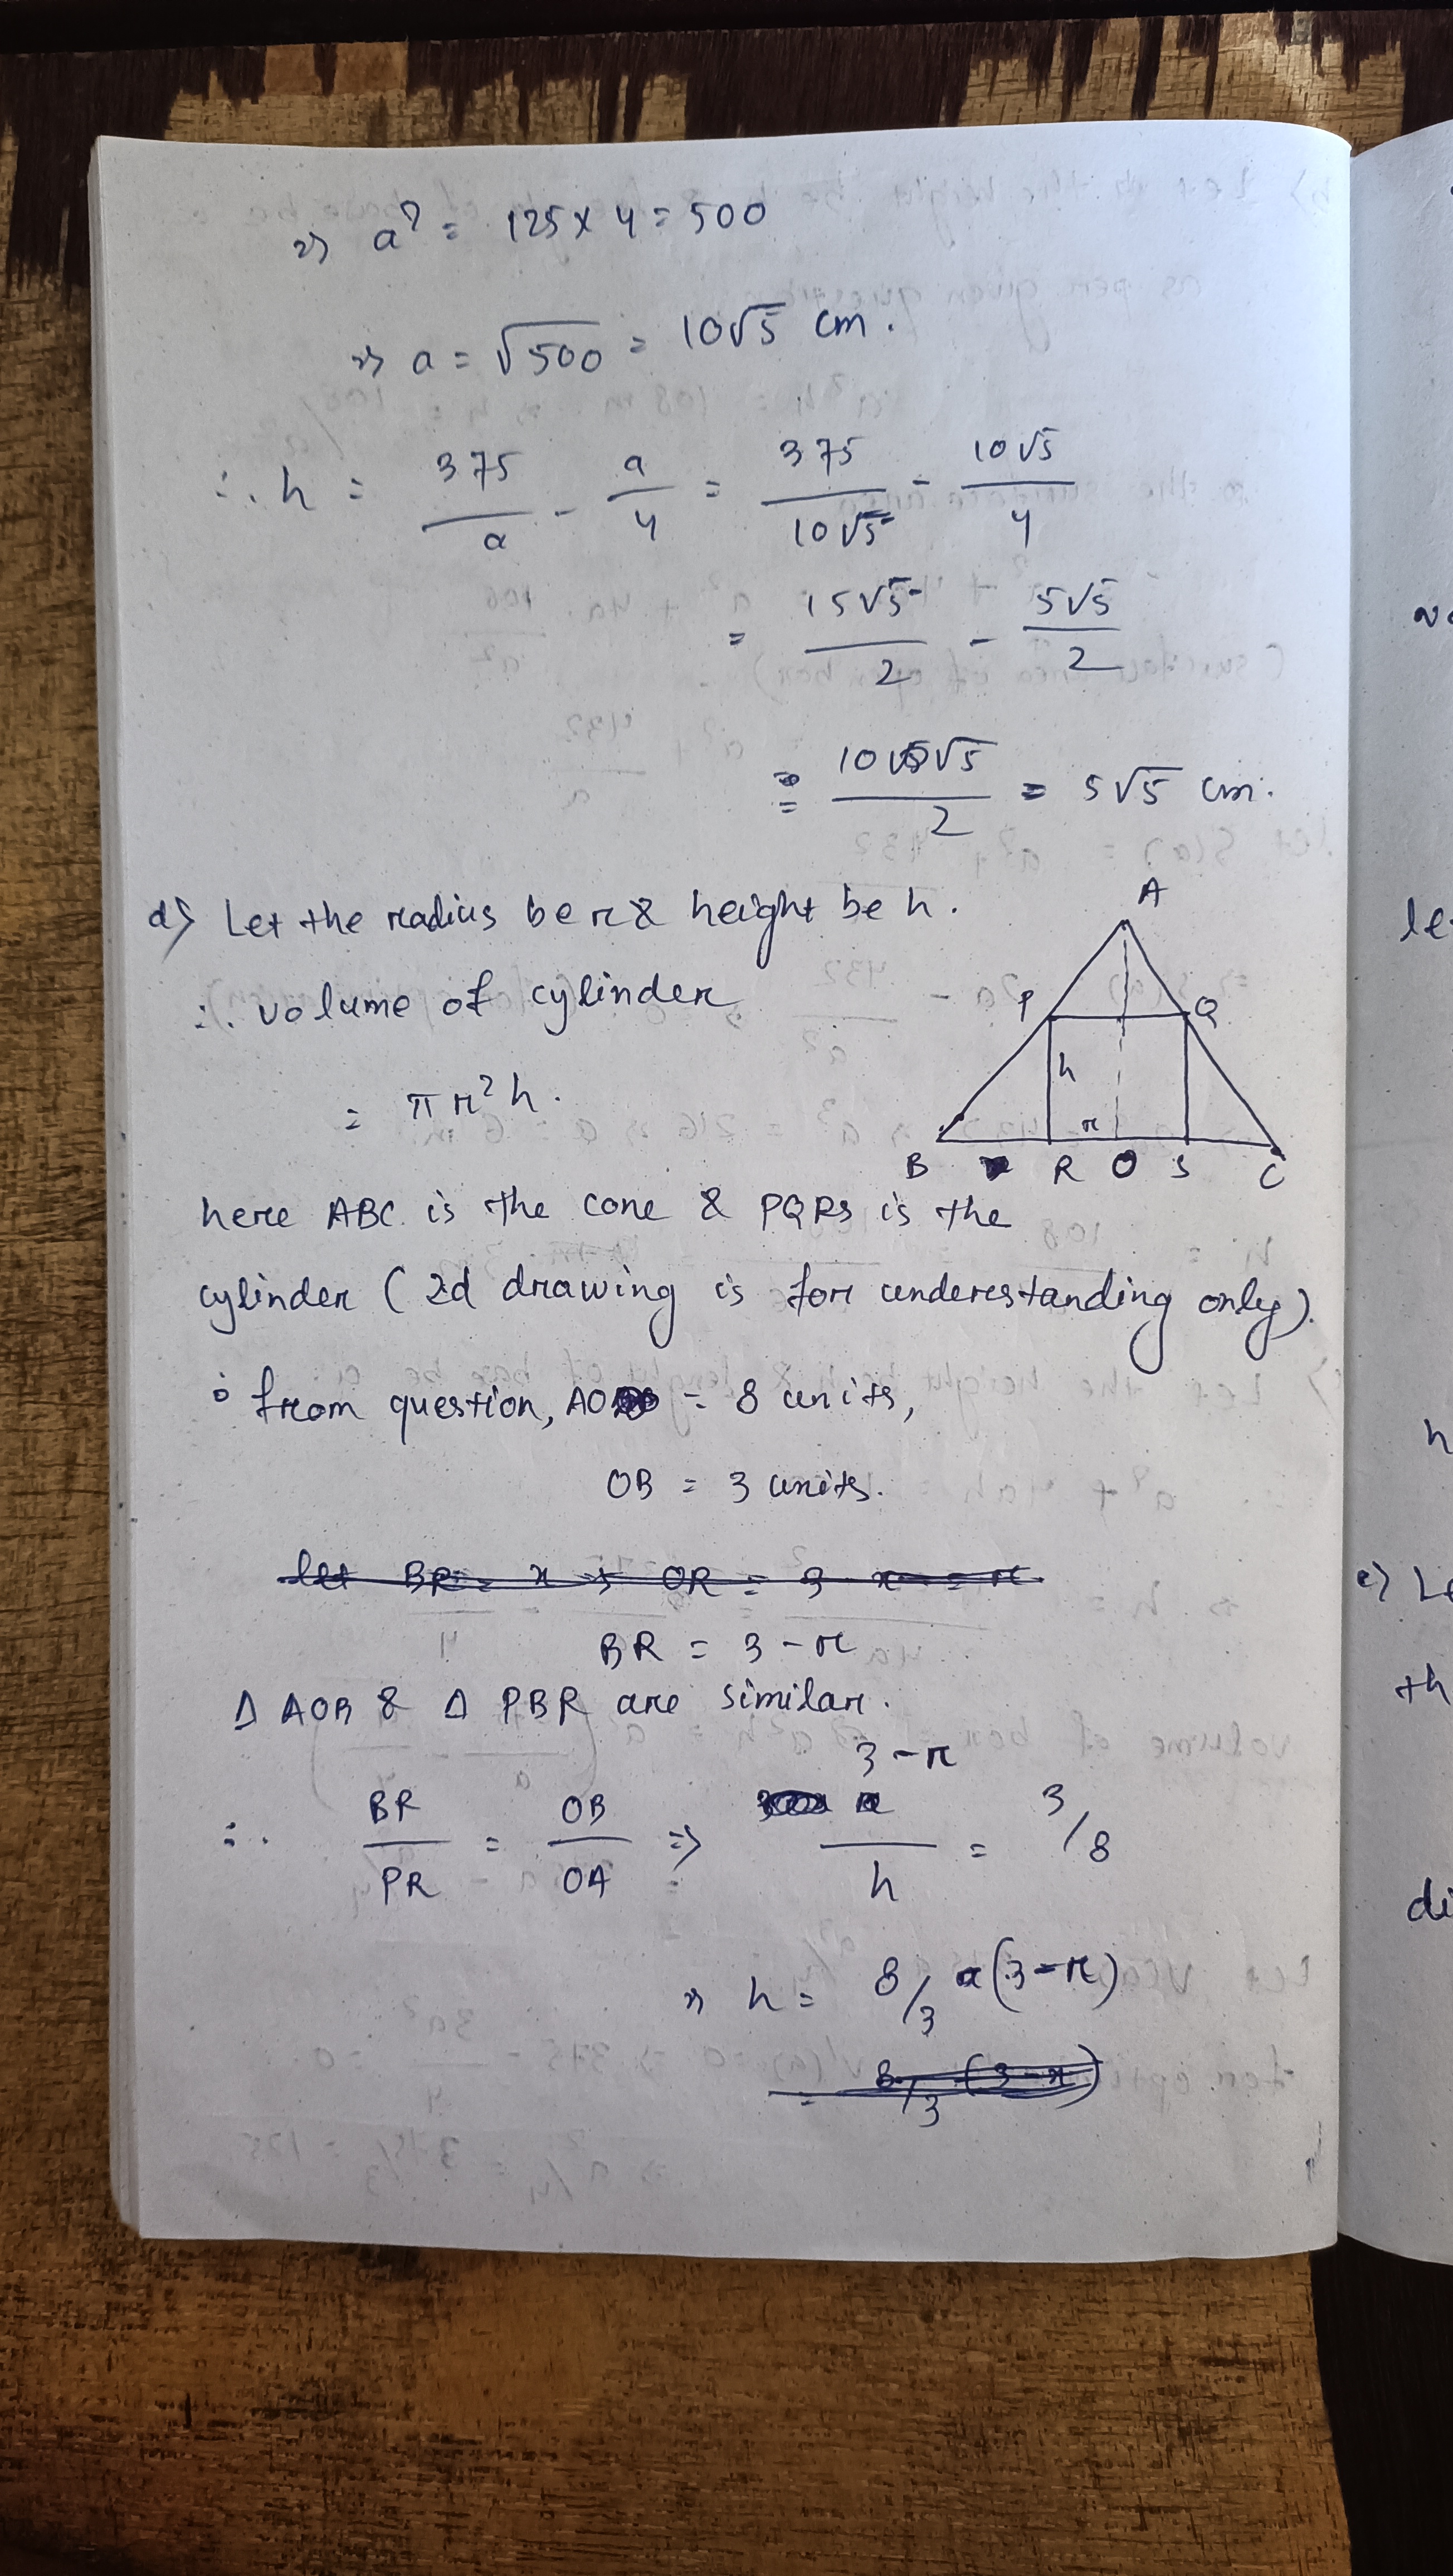 ⇒ a² = 125 x 4 = 500
⇒ a = √500 = 10√5 cm.
∴ h = 375/a - a/4 = 375/10√5 - 10√5/4
= 15√5/2 - 5√5/2
= 10√5/2 = 5√5 cm.
d) Let the radius be r & height be h.
∴ volume of cylinder
= πr²h.
A
P Q
h
r
B R O S C
here ABC is the cone & PQRS is the
cylinder (2d drawing is for understanding only).
from question, AO = 8 units,
OB = 3 units.
let BR = x ⇒ OR = 3 - x = r
BR = 3 - r
Δ AOB & Δ PBR are similar.
∴ BR/PR = OB/OA ⇒ 3 - r/h = 3/8
⇒ h = 8/3 (3 - r)
= 8/3 (3 - x)
le
h
e) Le
th
di